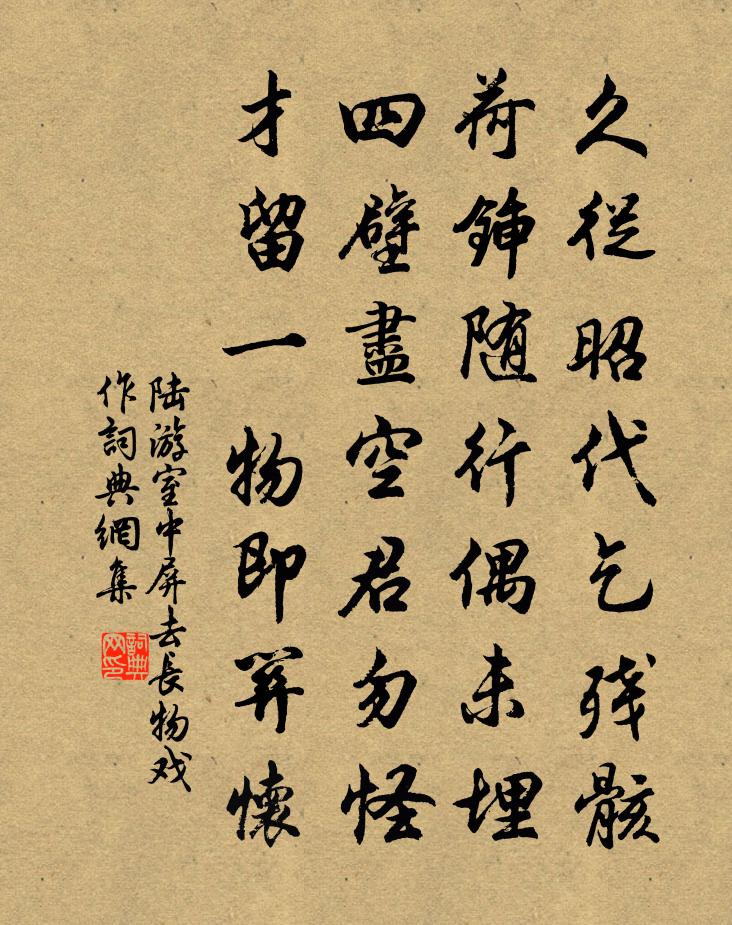 久從昭代乞残骸
荷鍤随行偶未埋
四壁盡空君勿怪
才留一物即關懷
陆游室中屏去長物戏
作詞典網集
詞典
网印